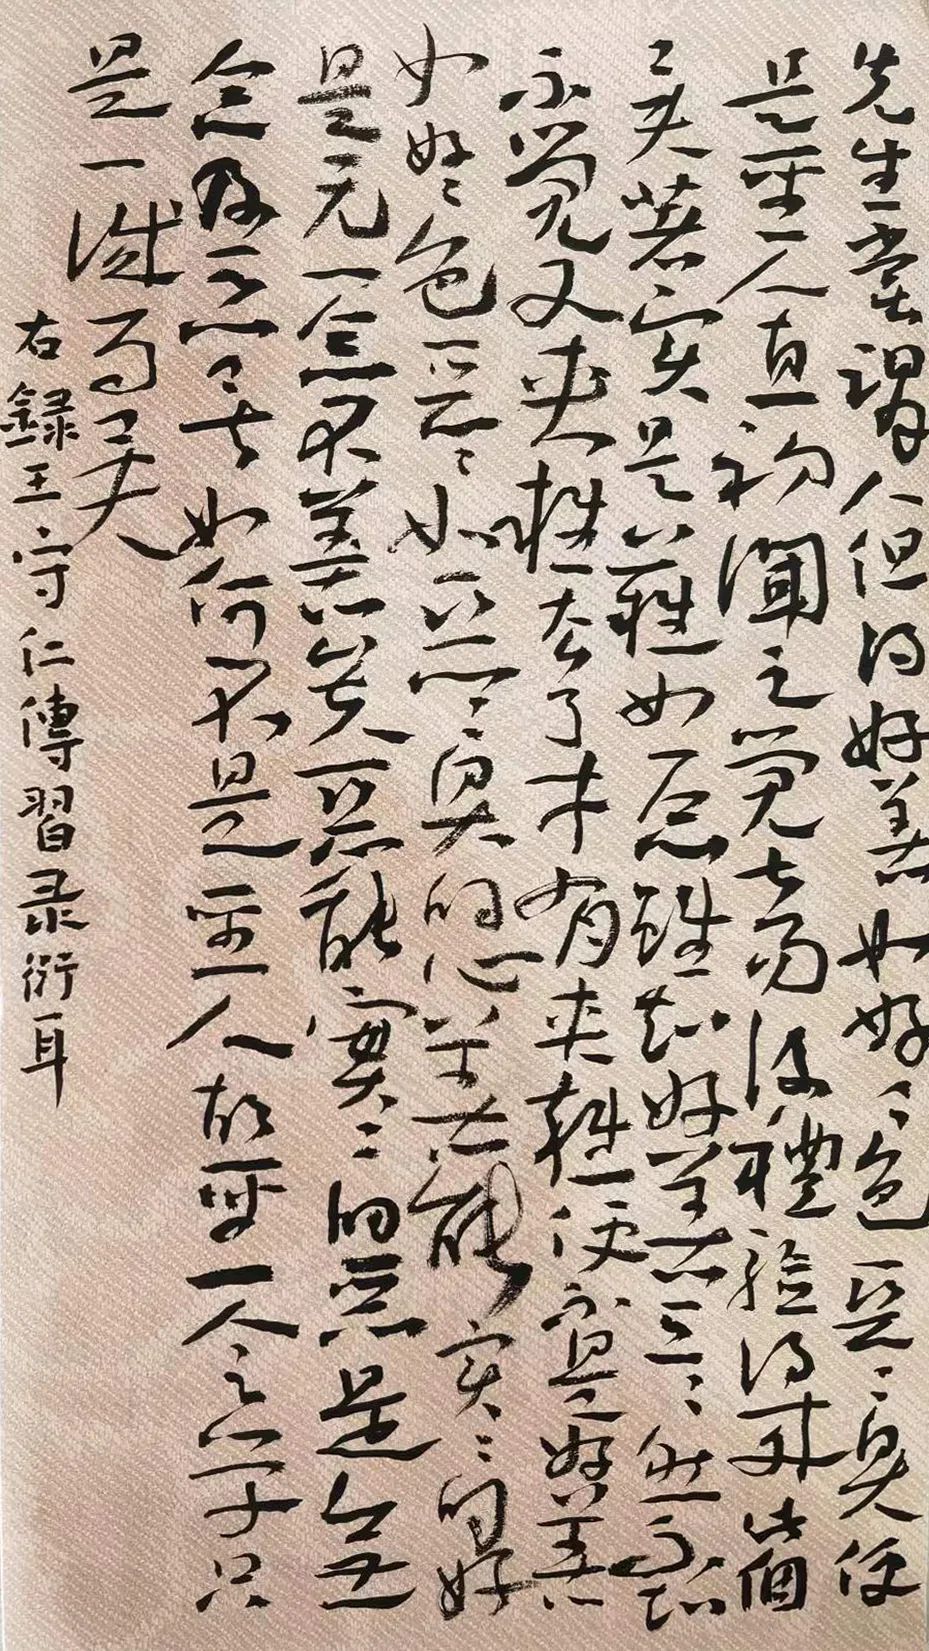 先生嘗謂人但得好善如好〻色惡〻臭便
是聖人直初聞之覺甚易後體驗得來此個
工夫著实是難如一念雖知好善惡〻然不知
不覺又夾雜去了才有夾雜便不是好善
如好〻色惡〻如惡〻臭的心善能实〻的好
是无一念不善矣惡能實〻的惡是無
念及惡矣如何不是聖人故聖人之学只
是一誠而已矣
右錄王守仁傳習录衍耳